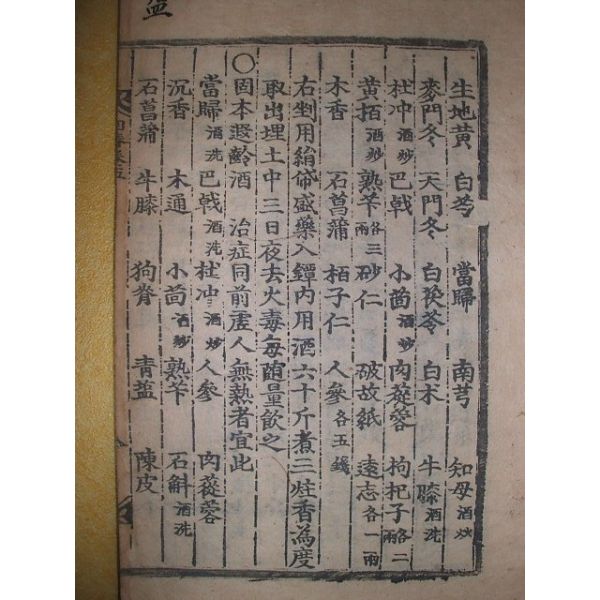 生地黄 白芍 當歸 南芎 知母酒炒
麥門冬 天門冬 白茯苓 白术 牛膝酒洗
杜冲酒炒 巴戟 小茴酒炒 肉蓯蓉 枸杞子各二兩
黄栢酒炒 熟苄各三兩 砂仁 破故紙 遠志各一兩
木香 石菖蒲 栢子仁 人參各五錢
右剉用絹帒盛藥入罈内用酒六十斤煮三炷香為度
取出埋土中三日夜去火毒每随量飲之
○固本遐齡酒 治症同前虚人無熱者宜此
當歸酒洗 巴戟酒洗 杜冲酒炒 人參 肉蓯蓉
沉香 木通 小茴酒炒 熟苄 石斛酒洗
石菖蒲 牛膝 狗脊 青盐 陳皮